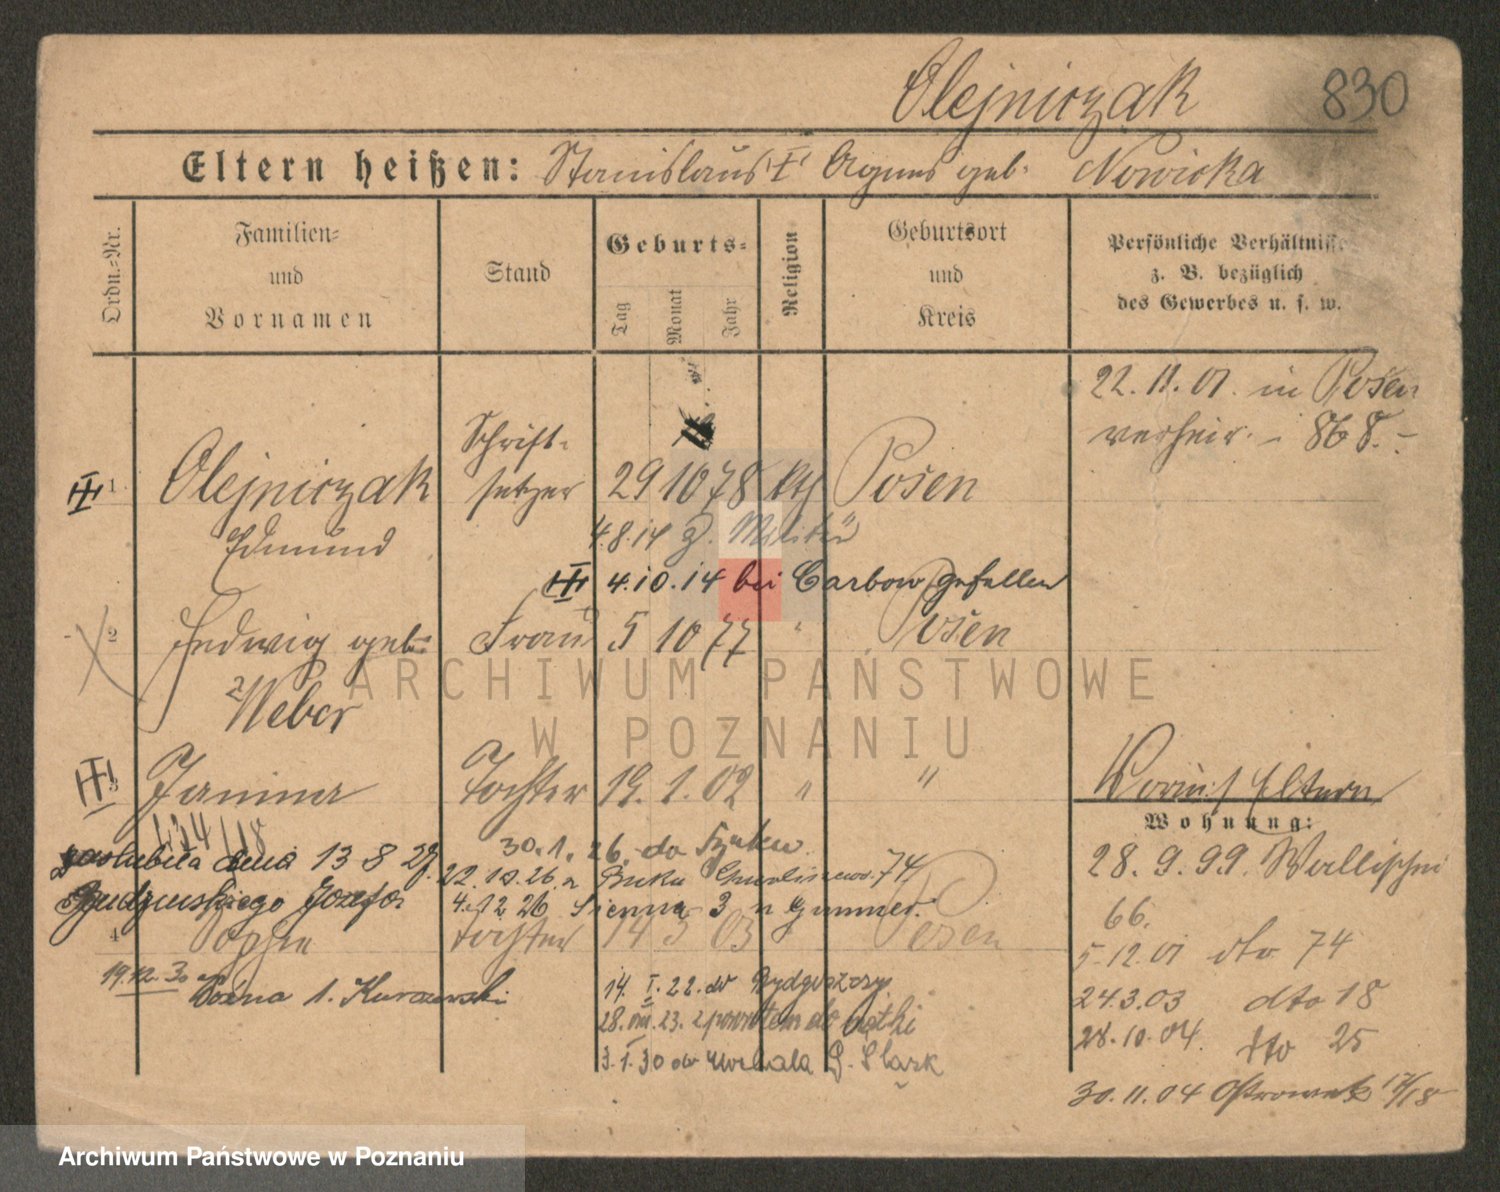 Olejniczak 830
Eltern heißen: Stanislaus I Agnes geb. Nowicka
Ordn.-Nr.
Familien- und Vornamen
Stand
Geburts-
Tag Monat Jahr
Religion
Geburtsort und Kreis
Persönliche Verhältnisse
z. B. bezüglich
des Gewerbes u. s. w.
22.11.01. in Posen
verheir. - 868. -
1 Olejniczak Schriftsetzer 29 10 78 kth Posen
Edmund
4.8.14 z. Militär
4.10.14 bei gefallen
2 Hedwig geb. Frau 5 10 77 " Posen
Weber
3 Janina Tochter 19. 1. 02 " "
Eltern
134/18
30.1.26. do
13 8 29. 22.10.26. Buku 74
Jozefa 4.12 26 Sienna 3
4 Tochter 14 5 03 Posen
19.12.30
14. I. 22. do Bydgoszczy
28. VIII. 23. z powrotem do matki
3.1.30 do G. Śląsk
Wohnung:
28.9.99. Wallischei
66.
5.12.01 dto 74
24.3.03 dto 18
28.10.04. dto 25
30.11.04 Ostrowek 17/18
ARCHIWUM PAŃSTWOWE
W POZNANIU
Archiwum Państwowe w Poznaniu